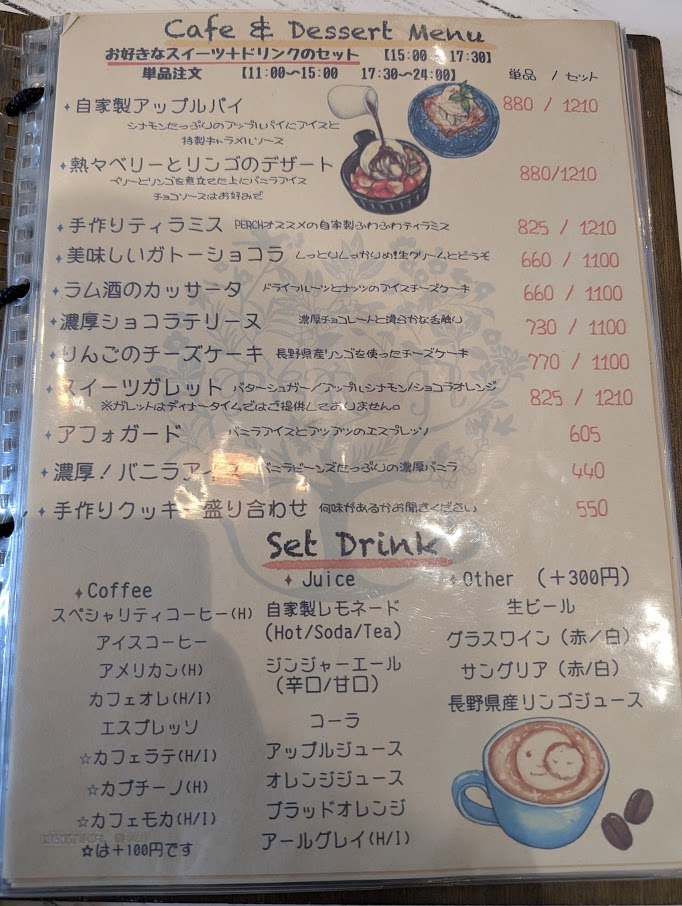 Cafe & Dessert Menu
お好きなスイーツ+ドリンクのセット 【15:00 17:30】
単品注文 【11:00〜15:00 17:30〜24:00】 単品 / セット
自家製アップルパイ 880 / 1210
シナモンたっぷりのアップルパイにアイスと
特製キャラメルソース
熱々ベリーとリンゴのデザート 880/1210
ベリーとリンゴを煮立てた上にバニラアイス
チョコソースはお好みで
手作りティラミス PEACHオススメの自家製ふわふわティラミス 825 / 1210
美味しいガトーショコラ しっとりしっかりめ!生クリームとどうぞ 660 / 1100
ラム酒のカッサータ ドライフルーツとナッツのアイスチーズケーキ 660 / 1100
濃厚ショコラテリーヌ 濃厚チョコレートと滑らかな舌触り 730 / 1100
りんごのチーズケーキ 長野県産リンゴを使ったチーズケーキ 770 / 1100
スイーツガレット バターシュガー/アップルシナモン/ショコラオレンジ 825 / 1210
※ガレットはディナータイムではご提供しておりません。
アフォガード バニラアイスとアツアツのエスプレッソ 605
濃厚!バニラアイス バニラビーンズたっぷりの濃厚バニラ 440
手作りクッキー盛り合わせ 何味があるかお聞きください 550
Set Drink
Coffee
スペシャリティコーヒー(H)
アイスコーヒー
アメリカン(H)
カフェオレ(H/I)
エスプレッソ
☆カフェラテ(H/I)
☆カプチーノ(H)
☆カフェモカ(H/I)
☆は+100円です
Juice
自家製レモネード
(Hot/Soda/Tea)
ジンジャーエール
(辛口/甘口)
コーラ
アップルジュース
オレンジジュース
ブラッドオレンジ
アールグレイ(H/I)
Other (+300円)
生ビール
グラスワイン(赤/白)
サングリア(赤/白)
長野県産リンゴジュース